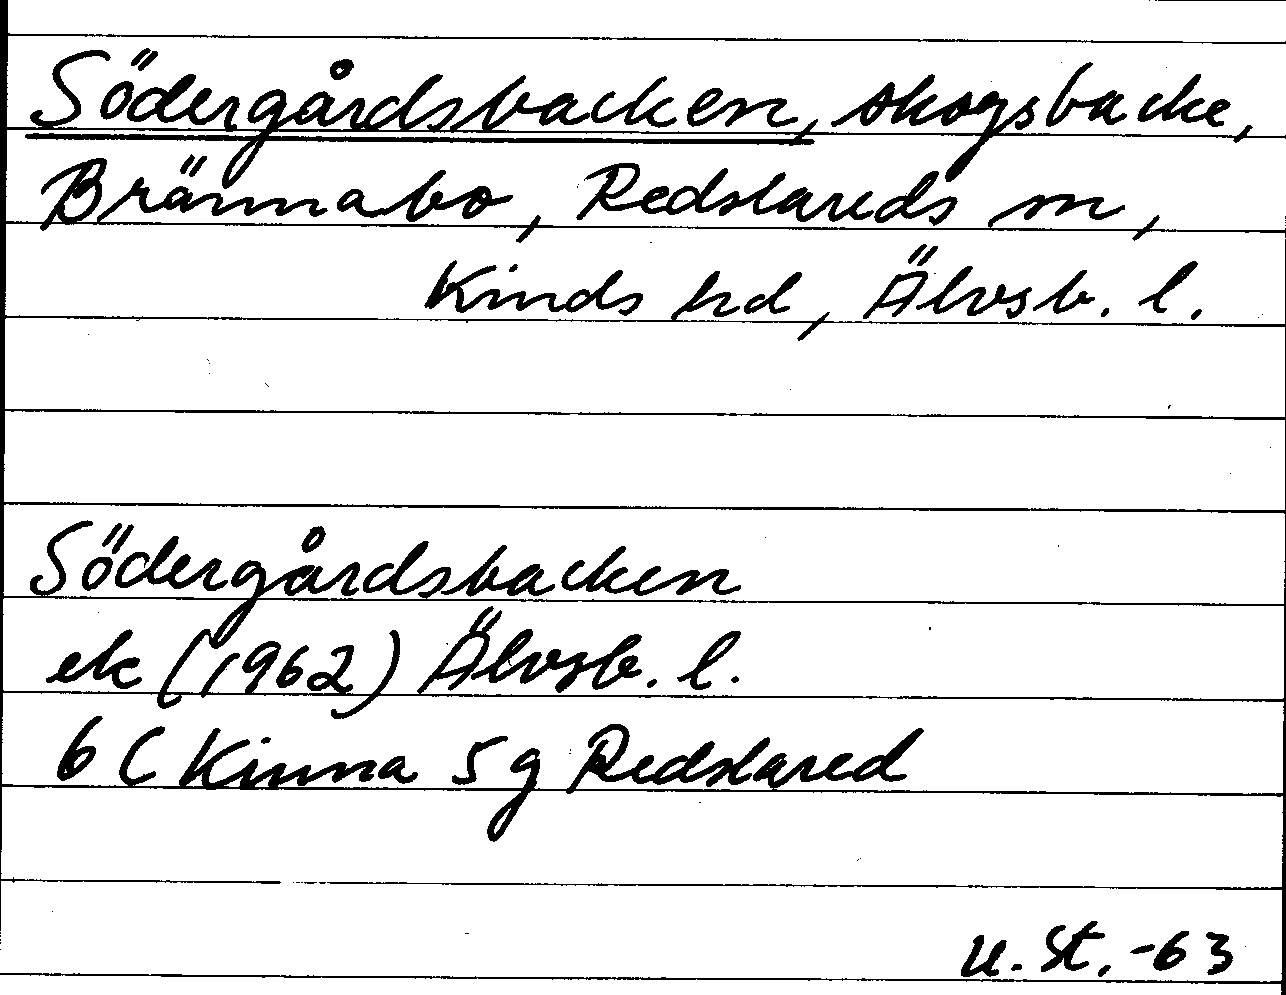 Södergårdsbacken, skogsbacke,
Brännabo, Redslareds sn,
Kinds hd, Älvsb. l.
Södergårdsbacken
ek (1962) Älvsb. l.
6 C Kinna 5 g Redslared
U. St. -63